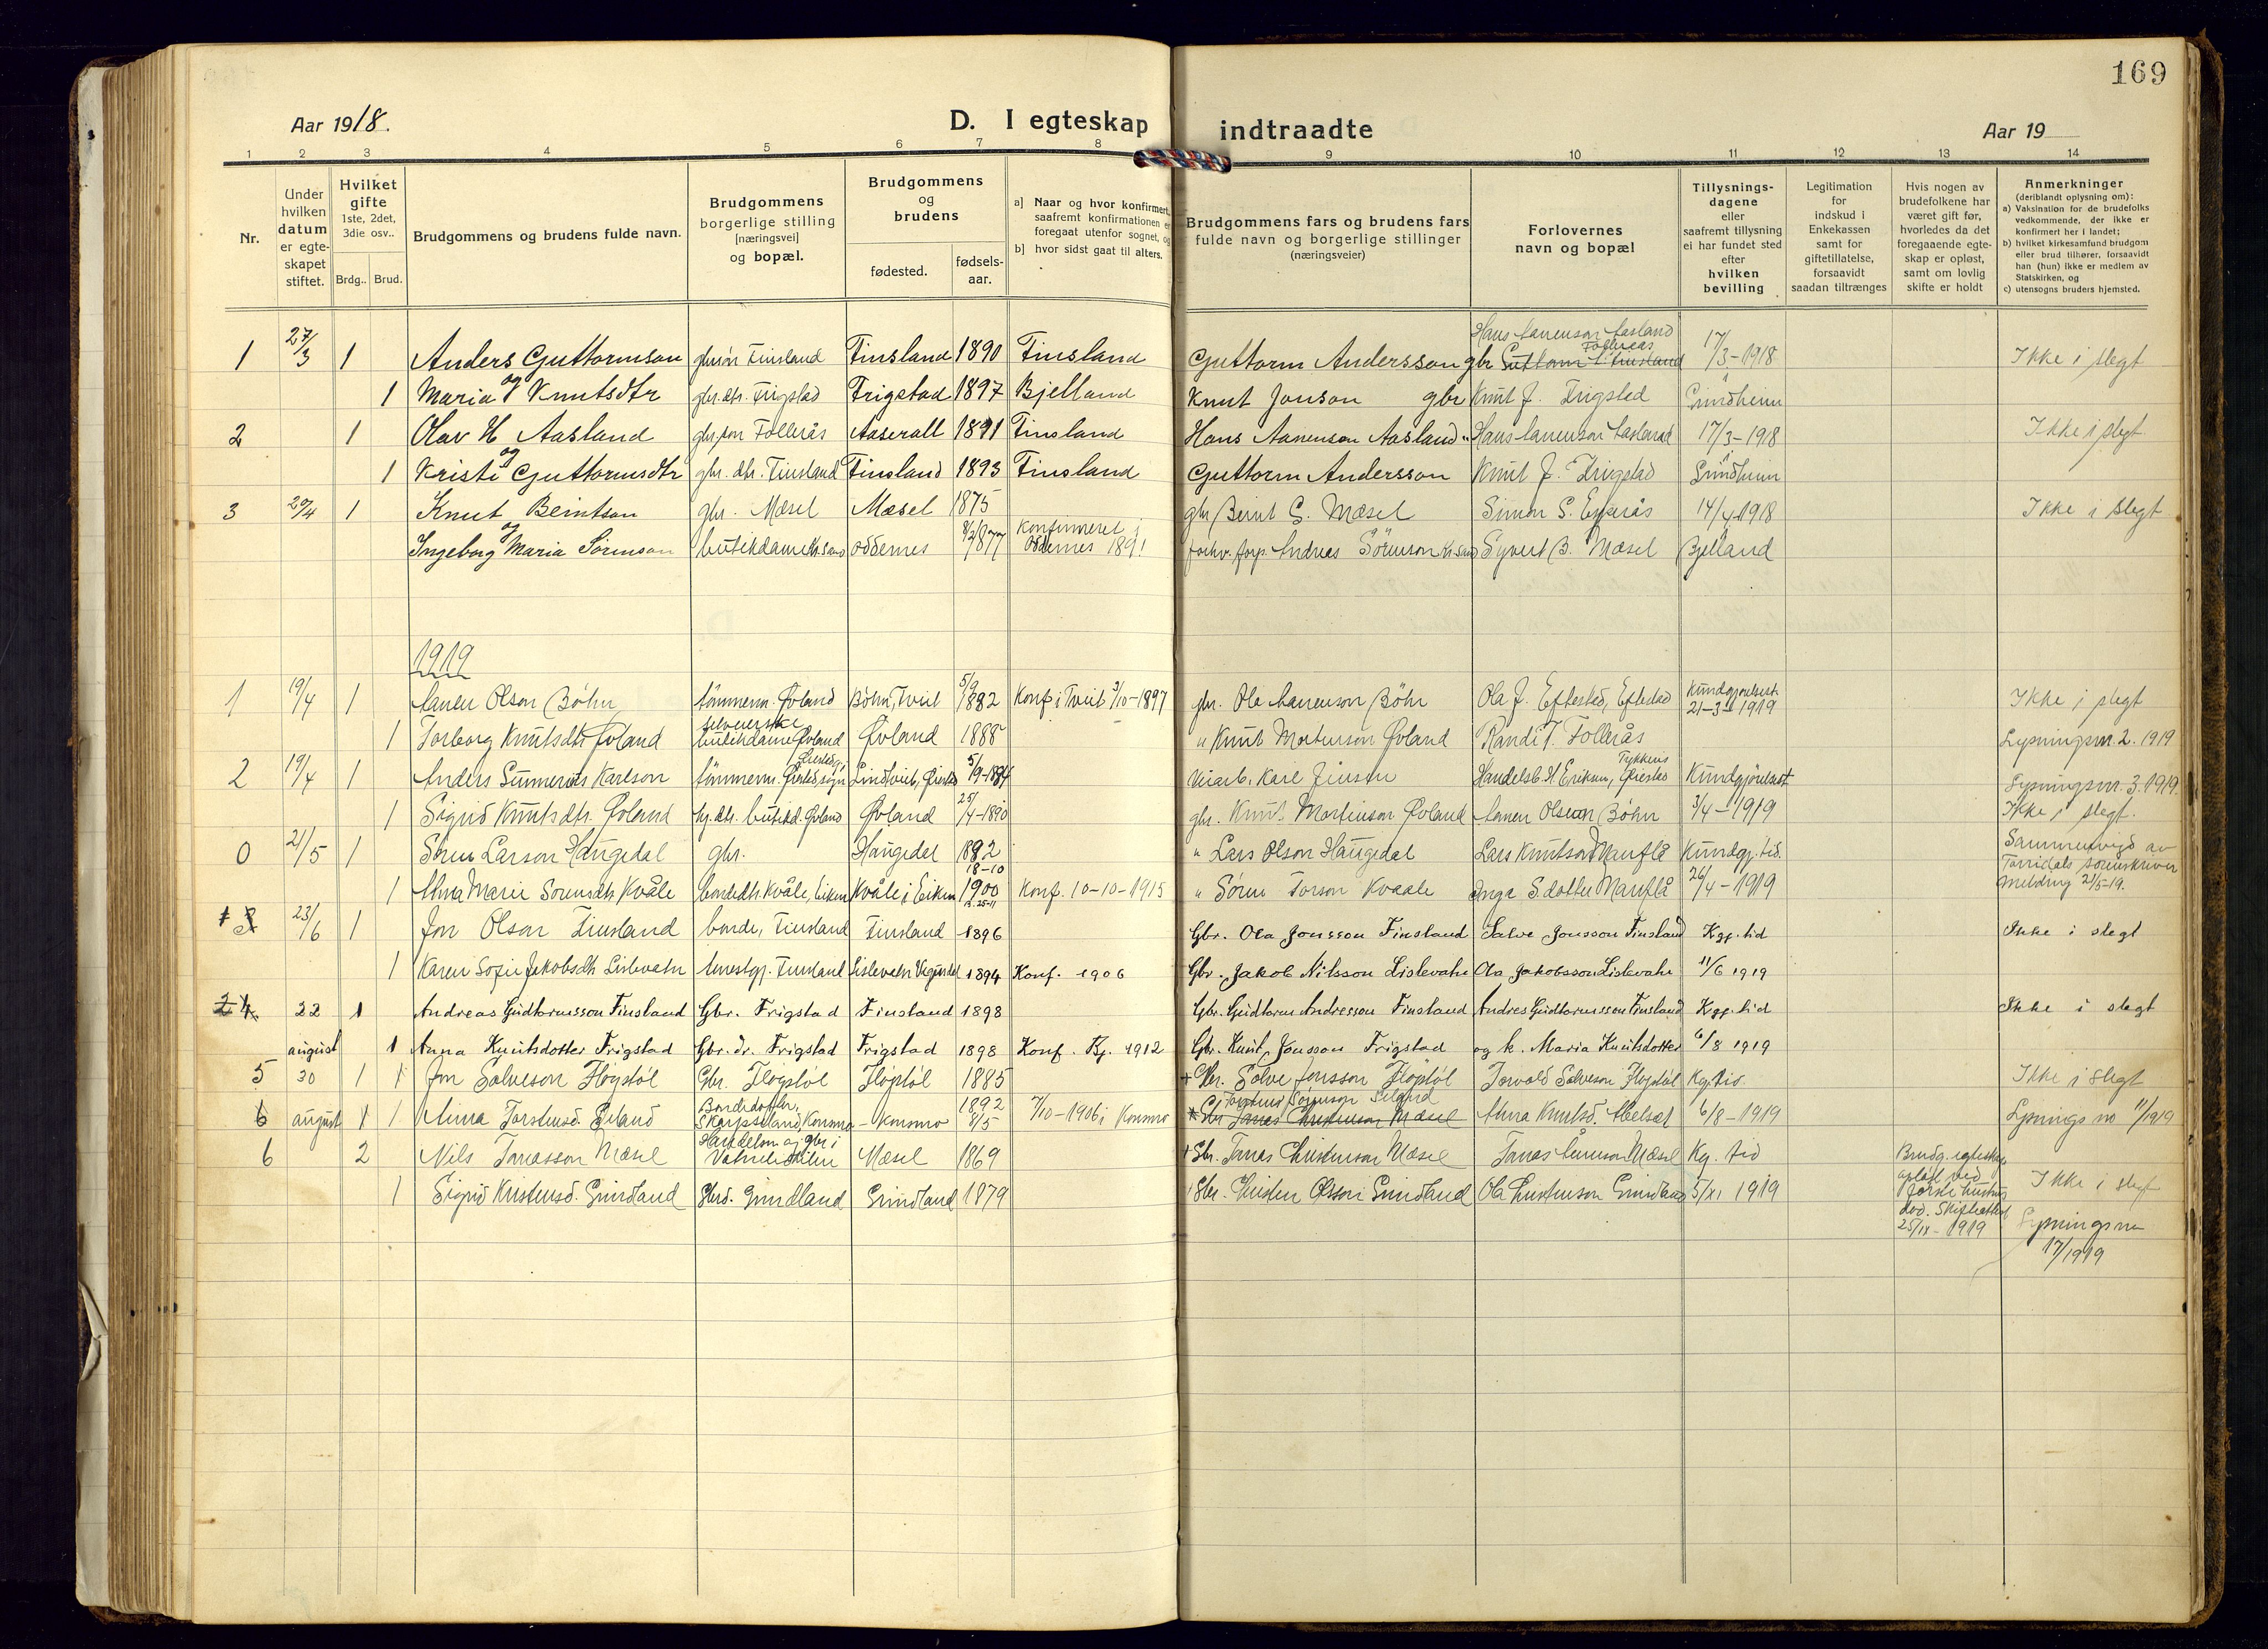 169
Aar 1918.
D. I egteskap indtraadte
Aar 19
1 2 3 4 5 6 7 8 9 10 11 12 13 14
Nr.
Under hvilken datum er egteskapet stiftet.
Hvilket gifte
1ste, 2det, 3die osv..
Brdg.. Brud.
Brudgommens og brudens fulde navn.
Brudgommens borgerlige stilling [næringsvei] og bopæl.
Brudgommens og brudens
fødested.
fødsels-aar.
a] Naar og hvor konfirmert, saafremt konfirmationen er foregaat utenfor sognet, og
b] hvor sidst gaat til alters.
Brudgommens fars og brudens fars fulde navn og borgerlige stillinger (næringsveier)
Forlovernes navn og bopæl
Tillysnings-dagene eller saafremt tillysning ei har fundet sted efter hvilken bevilling
Legitimation for indskud i Enkekassen samt for giftetillatelse, forsaavidt saadan tiltrænges
Hvis nogen av brudefolkene har været gift før, hvorledes da det foregaaende egte-skap er opløst, samt om lovlig skifte er holdt
Anmerkninger (deriblandt oplysning om):
a) Vaksination for de brudefolks vedkommende, der ikke er konfirmert her i landet;
b) hvilket kirkesamfund brudgom eller brud tilhører, forsaavidt han (hun) ikke er medlem av Statskirken, og
c) utensogns bruders hjemsted.
1 27/3 1 Anders Guttormson gbrsøn Finsland Finsland 1890 Finsland Guttorm Andersson gbr Hans Aanenson Aasland Follerås 17/3-1918 Ikke i slegt
og
1 Maria Knutsdtr gbr. dtr. Frigstad Frigstad 1897 Bjelland Knut Jonson gbr Knut J. Frigsted Grindheim
2 1 Olav H Aasland gbr, søn Follerås Aaserall 1891 Finsland Hans Aanenson Aasland " Hans Aanenson Aasland 17/3-1918 Ikke i slegt
og
1 Kristi Guttormsdtr gbr. dtr. Finsland Finsland 1893 Finsland Guttorm Andersson Knut J. Frigstad Grindheim
3 20/4 1 Knut Berntson gbr. Mæsel Mæsel 1875 gbr Bernt G. Mæsel Simon S. 14/4 1918 Ikke i slegt
og
Ingeborg Maria Sörenson butikdame Kr.sand Oddernes 8/2 1877 Konfirmeret i Oddernes 1891 Andreas Sörenson Kr.sand Syvert B. Mæsel Bjelland
1919
1 19/4 1 Aanen Olson Böhn tömmerm. Øvland Böhn, Tveit 5/9 1882 Konf i Tveit 3/10-1897 gbr. Ola Aanenson Böhn Ola J. Eftested, Eftestad Kundgjørelsest. 21-3-1919 Ikke i slegt
1 Torborg Knutsdtr Øvland butikdame Øvland Øvland 1888 " Knut Mortenson Øvland Randi T. Follerås Lysningsnr. 2. 1919
2 19/4 1 Anders Karlson tömmerm. Øiestad sogn Lindtveit, Øiestad 5/9-1884 Karl Jenson Handelsb. H. Erikson, Øiestad Kundgjörelsest Lysningsnr. 3. 1919.
1 Sigrid Knutsdtr. Øvland butikd. Øvland Øvland 25/4-1890 gbr. Knut Mortenson Øvland Aanen Olson Böhn 3/4-1919 Ikke i slegt.
0 21/5 1 Sören Larson Haugedal gbr. Haugedal 1892 18-10 " Lars Olson Haugedal Lars Knutson Manflå Kundgj. tid. Sammenvigd av Torridals sorenskriver
1 Anna Marie Sörensdtr Kvåle bondedtr Kvåle, Eiken Kvåle i Eiken 1900 25-11 Konf. 10-10-1915 " Sören Torson Kvaale Inga S.dotter Manflå 26/4-1919 melding 21/5-19.
3 23/6 1 Jon Olson Finsland bonde, Finsland Finsland 1896 Gbr. Ola Jonsson Finsland Salve Jonsson Finsland Kgj. tid Ikke i slegt
1 Karen Sofie Jakobsdtr Lislevatn Finsland Lislevatn Vegusdal 1894 Konf. 1906 Gbr. Jakob Nilsson Lislevatn Ola Jakobsson Lislevatn 11/6 1919
4 22 1 Andreas Gudtormsson Finsland Gbr. Frigstad Finsland 1898 Gbr. Gudtorm Andresson Finsland Andres Gudtormsson Finsland Kgj. tid Ikke i slegt
august 1 Anna Knutsdotter Frigstad Gbr. dr. Frigstad Frigstad 1898 Konf. Bj. 1912 Gbr. Knut Jonsson Frigstad og k. Maria Knutsdotter 6/8 1919
5 30 1 1 Jon Salveson Flögstöl Gbr. Flögstöl Flögstöl 1885 Gbr. Salve Jonsson Flögstöl Torvald Salveson Flögstöl Kgj. tid. Ikke i slegt
6 august 1 1 Anna Torstensd. Eiland Bondedotter, Skarpseland, Konsmo - Konsmo 1892 8/5 7/10-1906 i Konsmo G. Torstens Sörenson Eiland Gbr Tanas Christenson Mæsel Anna Knutsd. Abelset 6/8-1919 Lysnings no 11/1919
6 2 Nils Tanasson Mæsel Handelsm. og gbr. i Vatnelislien Mæsel 1869 Gbr. Tanas Christenson Mæsel Tanas Aanenson Mæsel Kg. tid Brudg. egteskap opløst ved første hustrus död. Skifteattest 25/IX-1919 Ikke i slegt
1 Sigrid Kristensd. Grindland Gbrd. Grindland Grindland 1879 Gbr. Christen Olsson Grindland Ola Christenson Grindland 5/XI 1919 Lysningsnr 17/1919